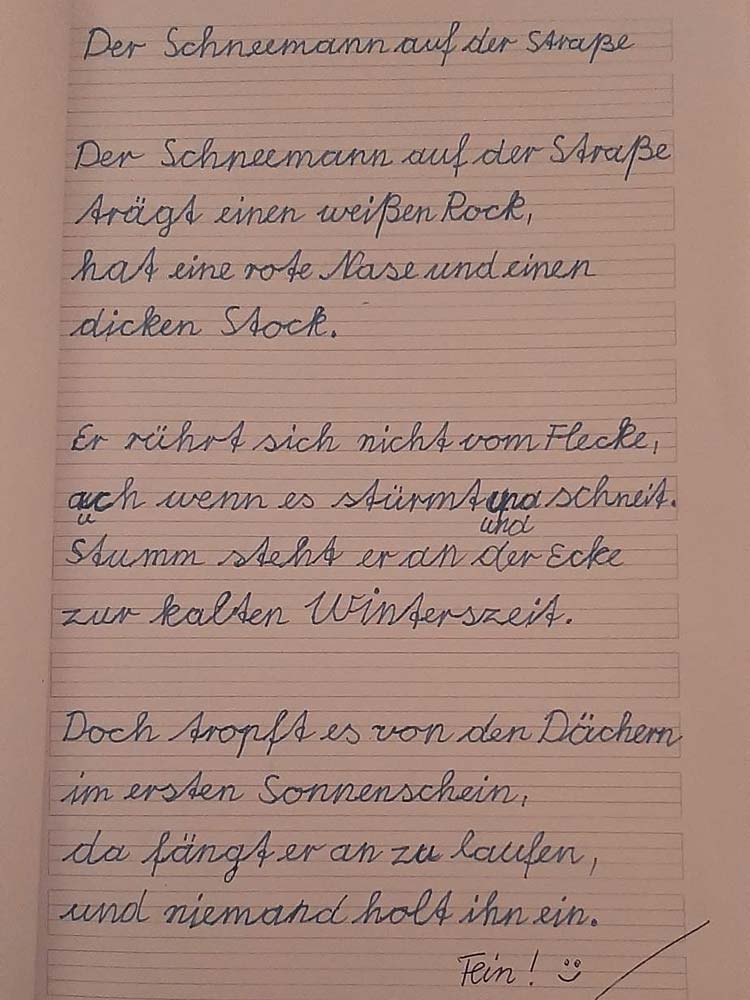 Der Schneemann auf der Straße
Der Schneemann auf der Straße
trägt einen weißen Rock,
hat eine rote Nase und einen
dicken Stock.
Er rührt sich nicht vom Flecke,
auch wenn es stürmt und schneit.
Stumm steht er an der Ecke
zur kalten Winterszeit.
Doch tropft es von den Dächern
im ersten Sonnenschein,
da fängt er an zu laufen,
und niemand holt ihn ein.
Fein! :)